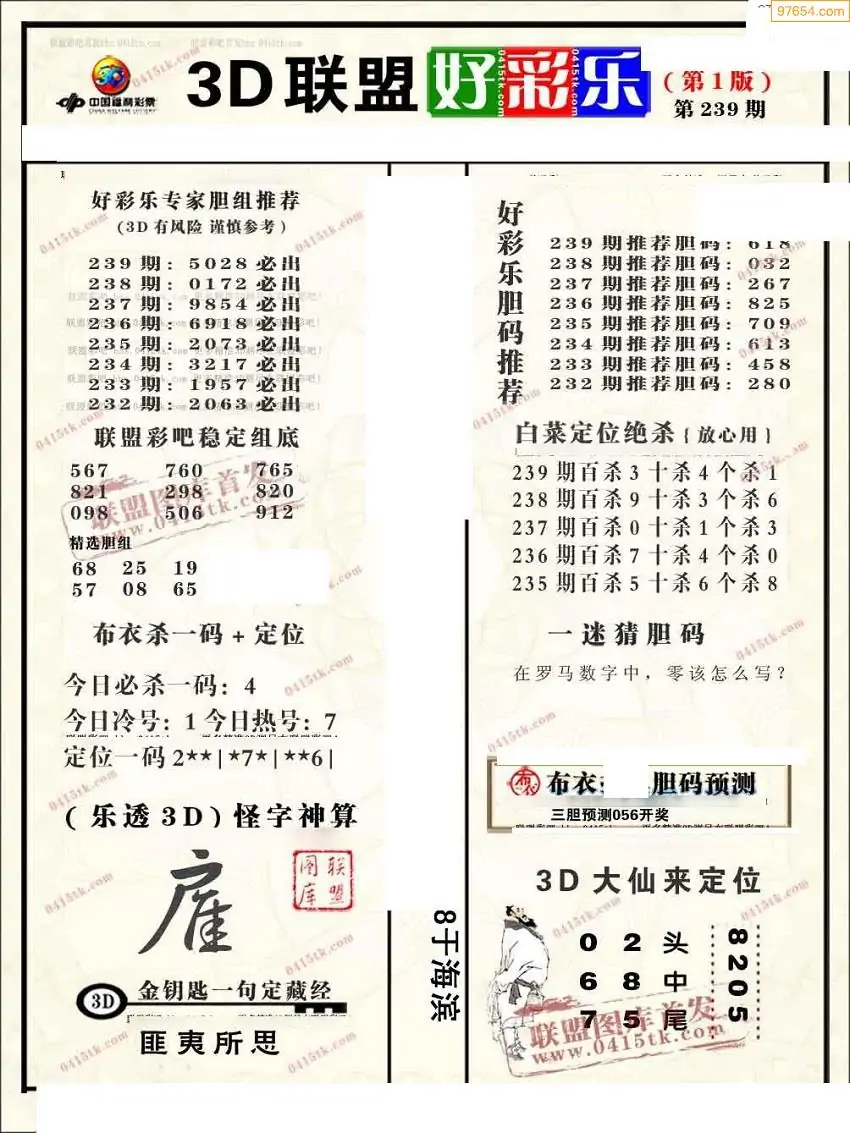 97654.com
中国福利彩票
CHINA WELFARE LOTTERY
3D联盟好彩乐
(第1版)
第239期
好彩乐专家胆组推荐
(3D有风险 谨慎参考)
239期: 5028必出
238期: 0172必出
237期: 9854必出
236期: 6918必出
235期: 2073必出
234期: 3217必出
233期: 1957必出
232期: 2063必出
联盟彩吧稳定组底
567 760 765
821 298 820
098 506 912
精选胆组
68 25 19
57 08 65
布衣杀一码+定位
今日必杀一码: 4
今日冷号: 1 今日热号: 7
定位一码2**|*7*|**6|
(乐透3D)怪字神算
雇
联盟图库
3D 金钥匙一句定藏经
匪夷所思
8于海滨
好彩乐胆码推荐
239期推荐胆码: 618
238期推荐胆码: 032
237期推荐胆码: 267
236期推荐胆码: 825
235期推荐胆码: 709
234期推荐胆码: 613
233期推荐胆码: 458
232期推荐胆码: 280
白菜定位绝杀{放心用}
239期百杀3十杀4个杀1
238期百杀9十杀3个杀6
237期百杀0十杀1个杀3
236期百杀7十杀4个杀0
235期百杀5十杀6个杀8
一迷猜胆码
在罗马数字中，零该怎么写?
布衣 胆码预测
三胆预测056开奖
3D大仙来定位
0 2 头
6 8 中
7 5 尾
8205
联盟图库首发
www.0415tk.com